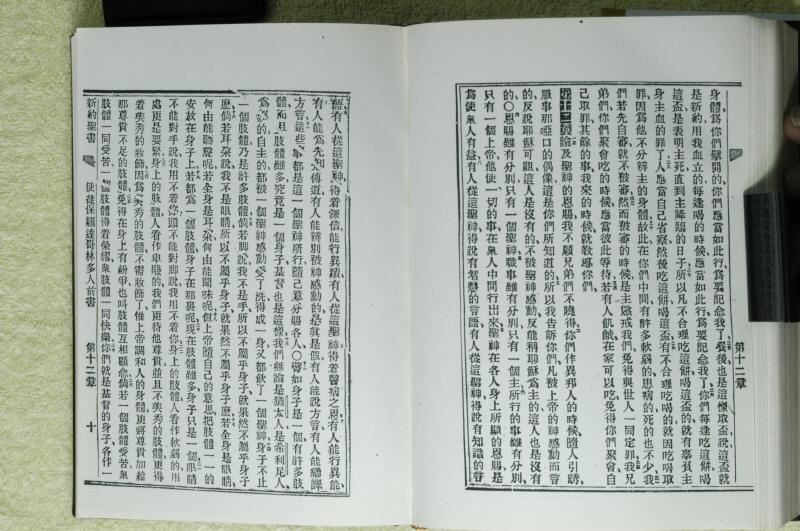 身體爲你們擘開的你們應當如此行爲要記念我了餐後也是這樣取盃說這盃就
是新約用我血立的每逢喝的時候應當如此行爲要記念我了你們每逢吃這餅喝
這盃是表明主死直到主降臨的日子所以凡不合理吃這餅喝這盃的就有辜負主
身主血的罪了人應當自己省察然後吃這餅喝這盃有不合理吃喝的就因吃喝取
罪因他不分辨主的身體故此在你們中間有許多軟弱的患病的死的也不少我
們若先自審就不被審然而被審的時候是主懲戒我們免得與世人一同定罪我兄
弟們你們聚會吃的時候應當彼此等待若有人飢餓在家可以吃免得你們聚會自
己取罪其餘的事我來的時候就敎導你們
第十二章論及聖神的恩賜我不願兄弟們不曉得你們作異邦人的時候隨人引誘
服事那啞口的偶像這是你們所知道的所以我告訴你們凡被上帝的神感動而言
的反說耶穌可咀這人是沒有的不被聖神感動反能稱耶穌爲主的這人也是沒有
的〇恩賜雖有分別只有一個聖神職事雖有分別只有一個主所行的事雖有分別
只有一個上帝他使一切的事在衆人中間行出來聖神在各人身上所顯的恩賜是
爲使衆人有益有人從這聖神得說有智慧的言語有人從這聖神得說有知識的言
第十二章
語有人從這聖神得着深信能行異蹟有人從這聖神得着醫病之恩有人能行異能
有人能爲先知傳道有人能辨別被神感動的是眞是假有人能說方言有人能繙譯
方言這些事都是這一個聖神所行隨己意分賜各人〇譬如身子是一個有許多肢
體而且肢體雖多究竟是一個身子基督也是這樣我們無論是猶太人是希利尼人
爲奴的自主的都被一個聖神感動受了洗得成一身又都飲了一個聖神身子不止
一個肢體乃是許多肢體倘若脚說我不是手所以不屬乎身子就果然不屬乎身子
麽倘若耳朶說我不是眼睛所以不屬乎身子就果然不屬乎身子麽若全身是眼睛
何由能聽聲呢若全身是耳朶何由能聞味呢但上帝隨自己的意思把肢體一一的
安放在身子上若都爲一個肢體身子在那裏呢現在肢體雖多身子只是一個眼睛
不能對手說我用不着你頭不能對脚說我用不着你身上的肢體人看作軟弱的用
處更是要緊身上的肢體人看作卑賤的我們更待他尊貴並且不美秀的肢體更得
着美秀的妝飾因爲美秀的肢體不需妝飾了惟上帝調和人的身體更將尊貴加給
那尊貴不足的肢體免得在身上有紛爭也叫肢體互相顧念倘若一個肢體受苦衆
肢體一同受苦一個肢體得着榮耀衆肢體一同快樂你們就是基督的身子各作一
新約聖書 使徒保羅達哥林多人前書 第十二章 十